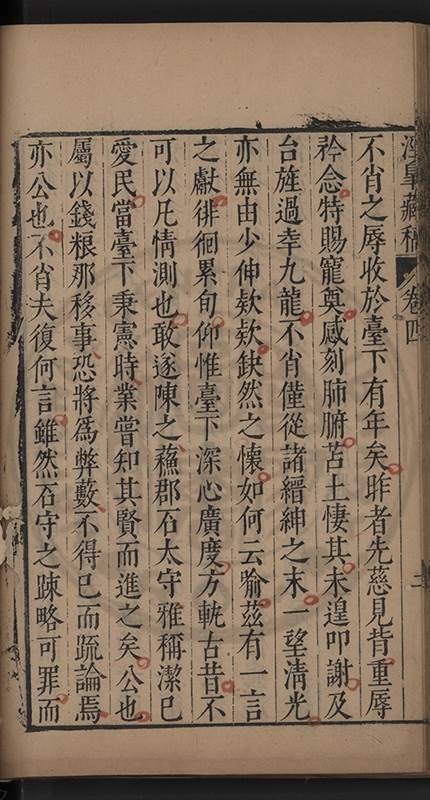 漢皐藏稿 卷四
不肖之辱收於臺下有年矣昨者先慈見背重辱
矜念特賜寵奠感刻肺腑苫土悽其未遑叩謝及
台旌過幸九龍不肖僅從諸縉紳之末一望清光
亦無由少伸欵欵缺然之懷如何云喻茲有一言
之獻徘徊累旬仰惟臺下深心廣度方軌古昔不
可以凡情測也敢遂陳之蘓郡石太守雅稱潔己
愛民當臺下秉憲時業嘗知其賢而進之矣公也
屬以錢粮那移事恐將爲弊藪不得已而疏論焉
亦公也不肖夫復何言雖然石守之踈略可罪而